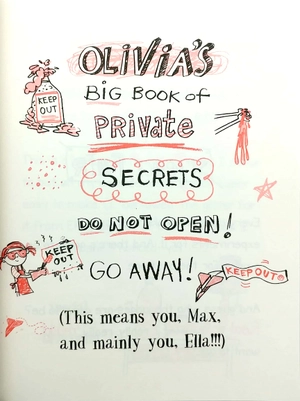 OLIVIA'S
BIG BOOK of
PRivate
SECRETS
DO NOT OPEN!
GO AWAY!
(This means you, Max,
and mainly you, Ella!!!)
KEEP
OUT
KEEP
OUT
KEEP OUT